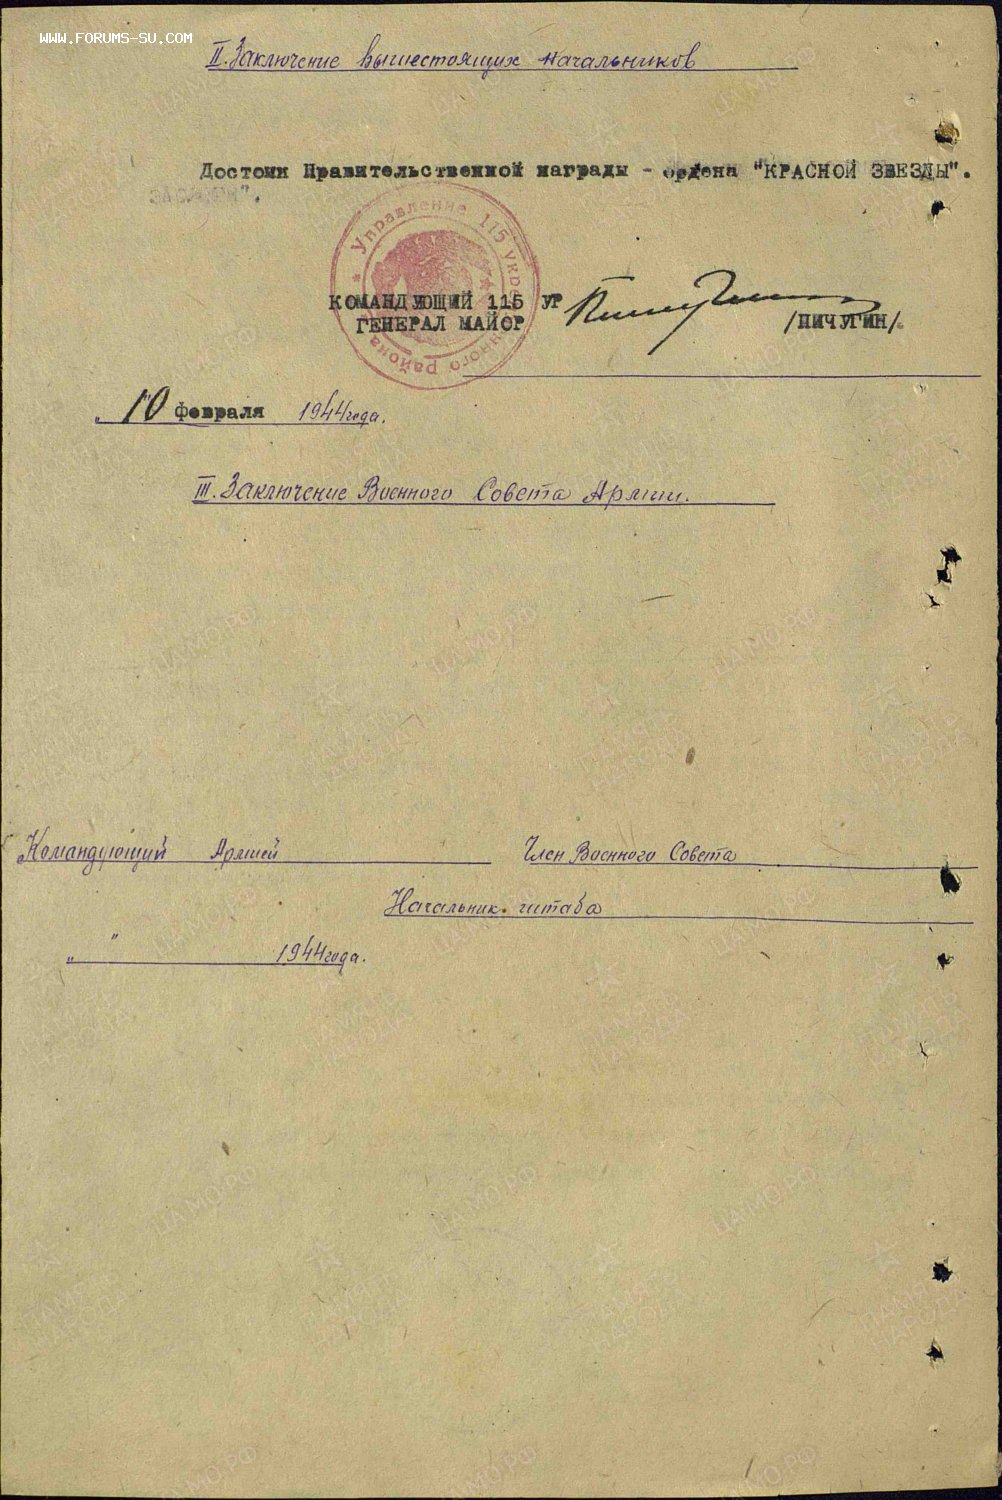 WWW.FORUMS-SU.COM
II. Заключение вышестоящих начальников
Достоин Правительственной награды - ордена "КРАСНОЙ ЗВЕЗДЫ".
Управление 115 укр нного района
КОМАНДУЮЩИЙ 115 УР
ГЕНЕРАЛ МАЙОР /ПИЧУГИН/.
"10 февраля 1944 года.
III. Заключение Военного Совета Армии.
Командующий Армией Член Военного Совета
Начальник штаба
" " 1944 года.
ЦАМО.РФ
ПАМЯТЬ НАРОДА